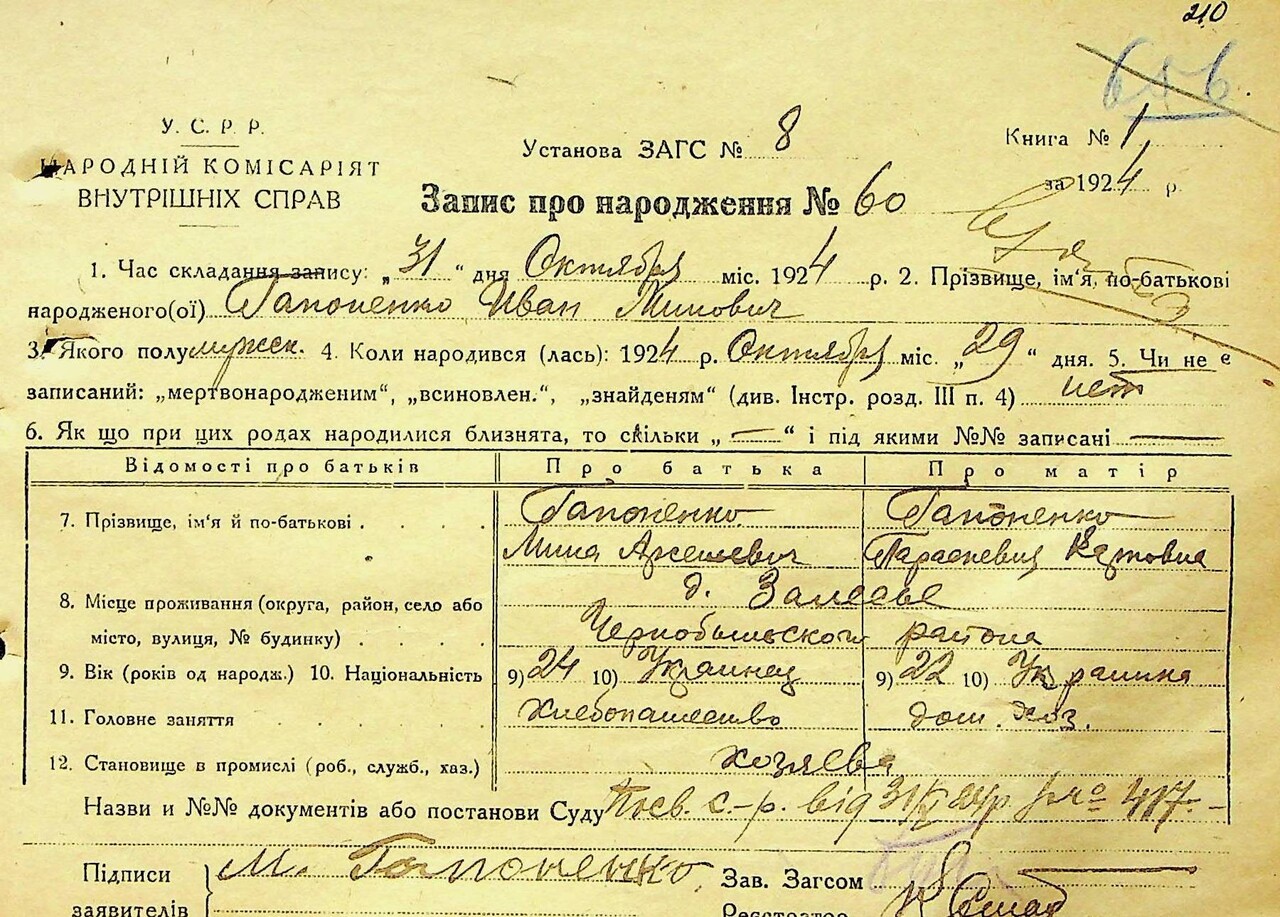 210
У. С. Р. Р.
НАРОДНІЙ КОМІСАРІЯТ
ВНУТРІШНІХ СПРАВ
Установа ЗАГС № 8
Книга № 1
за 1924 р.
Запис про народження № 60
1. Час складання запису: „31“ дня Октября міс. 1924 р. 2. Прізвище, ім'я, по-батькові
народженого(ої) Гапоненко Иван Минович
3. Якого полу мужск. 4. Коли народився (лась): 1924 р. Октября міс. „29“ дня. 5. Чи не є
записаний: „мертвонародженим“, „всиновлен.“, „знайденям“ (див. Інстр. розд. III п. 4) нет
6. Як що при цих родах народилися близнята, то скільки „—“ і під якими №№ записані —
Відомості про батьків Про батька Про матір
7. Прізвище, ім'я й по-батькові . . . . Гапоненко Гапоненко
Мина Арсеневич Параскевия Карповна
8. Місце проживання (округа, район, село або д. Залесье
місто, вулиця, № будинку) . . . . Чернобыльского района
9. Вік (років од народж.) 10. Національність 9) 24 10) Украинец 9) 22 10) Украинка
11. Головне заняття . . . . Хлебопашество дом. хоз.
12. Становище в промислі (роб., служб., хаз.) хозяева
Назви и №№ документів або постанови Суду Посв. с.-р. від 31/X 24р № 417.
Підписи М. Гапоненко Зав. Загсом
заявителів Реєстратор